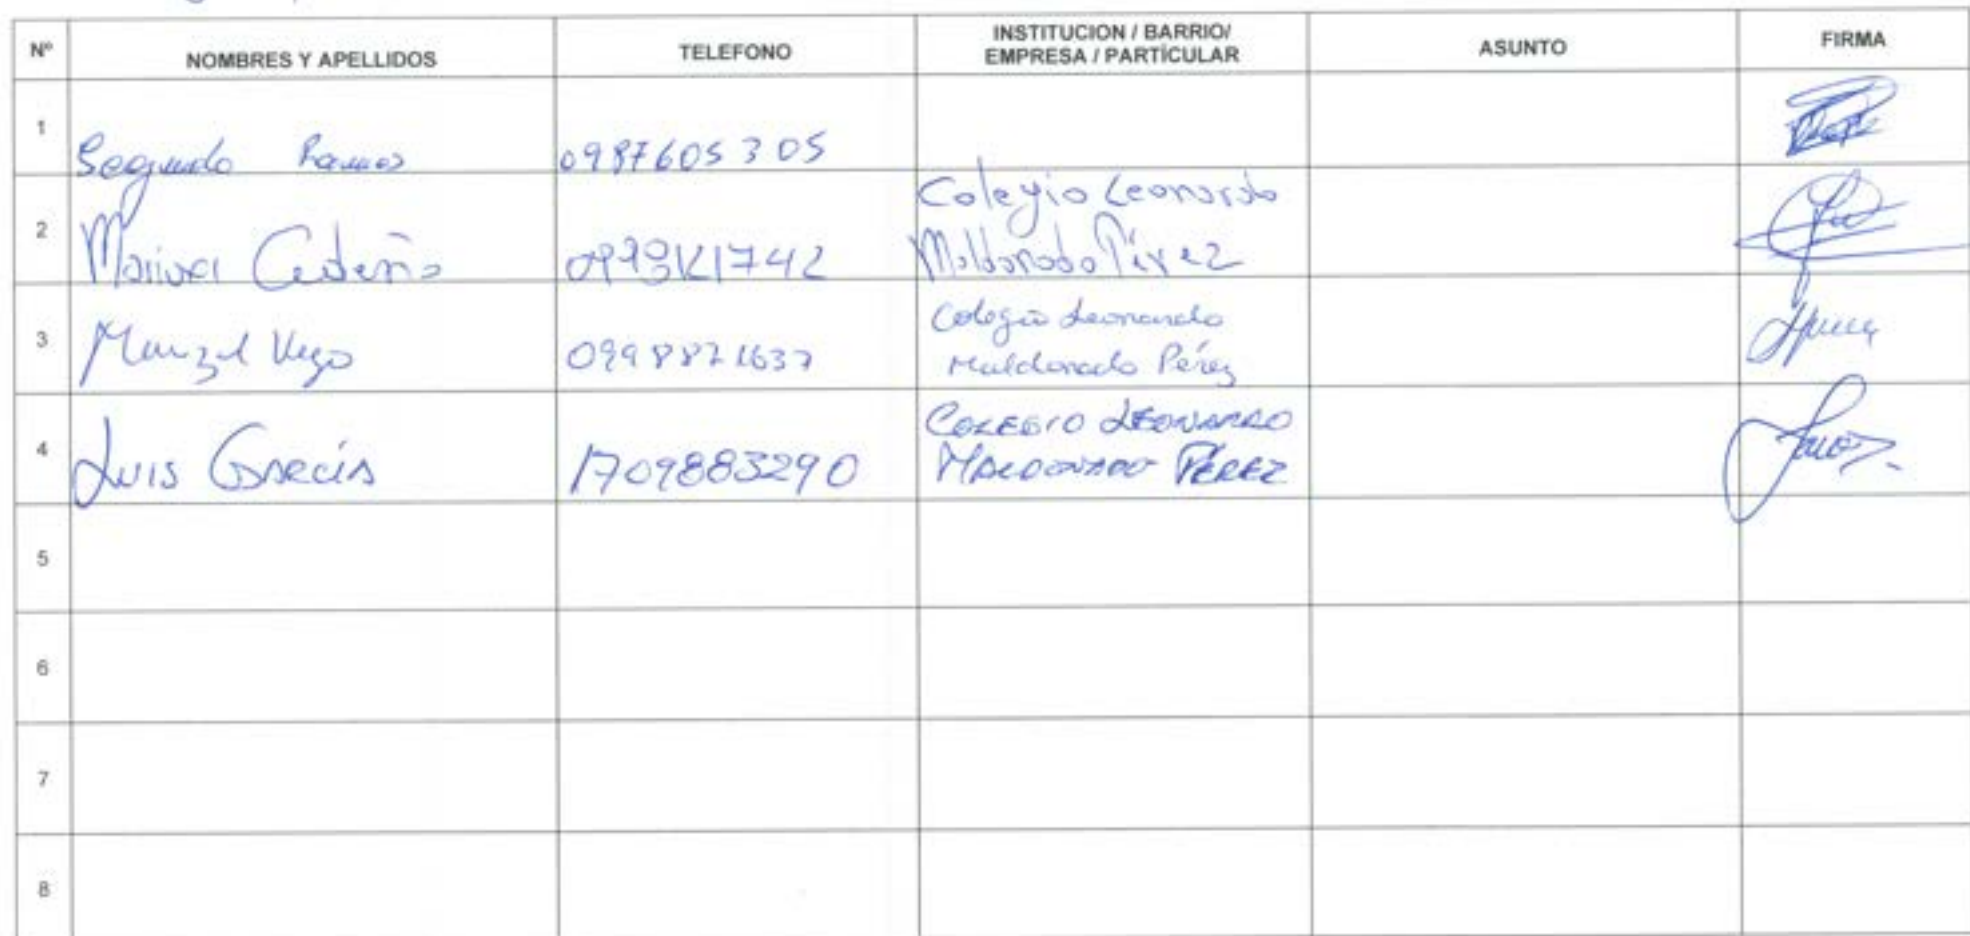 Nº NOMBRES Y APELLIDOS TELEFONO INSTITUCION / BARRIO/ EMPRESA / PARTÍCULAR ASUNTO FIRMA
1 Segundo Ramos 0987605305
2 Cedeño Colegio Leonardo
Maldonado Pérez
3 Vega 0998871637 Colegio Leonardo
Maldonado Pérez
4 Luis García 1709883290 COLEGIO LEONARDO
MALDONADO PÉREZ
5
6
7
8